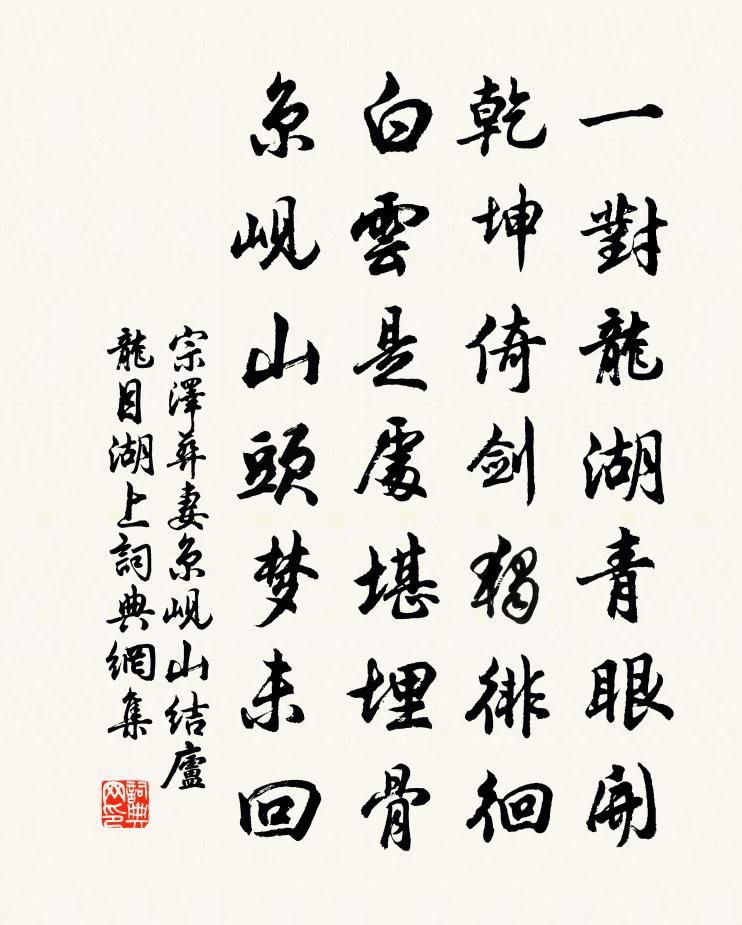 一對龍湖青眼開
乾坤倚劍獨徘徊
白雲是處堪埋骨
京峴山頭梦未回
宗澤葬妻京峴山結廬
龍目湖上詞典網集
詞典网印